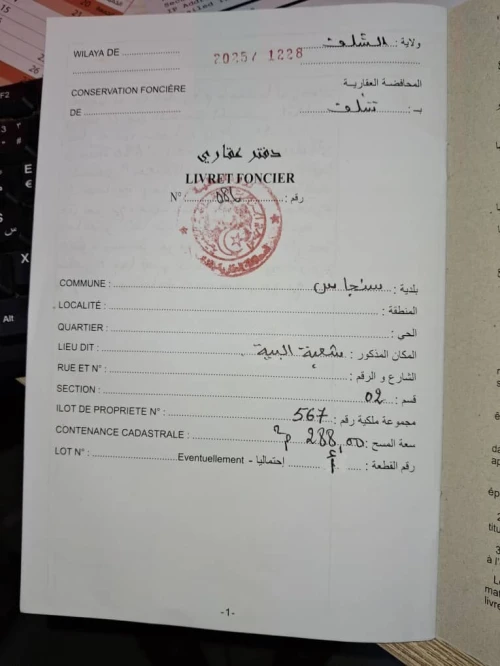 WILAYA DE ........................ 2025/ 1228 ولاية : الشلف
المحافظة العقارية
CONSERVATION FONCIÈRE
DE ........................ بـ : شلف
دفتر عقاري
LIVRET FONCIER
N° : رقم :
COMMUNE : سنجاس بلدية :
LOCALITÉ : المنطقة :
QUARTIER : الحي :
LIEU DIT : شعبة البية المكان المذكور :
RUE ET N° : الشارع و الرقم :
SECTION : 02 قسم :
ILOT DE PROPRIETE N° : 567 مجموعة ملكية رقم :
CONTENANCE CADASTRALE : 288,00 م2 سعة المسح :
LOT N° : Eventuellement - إحتماليا أ رقم القطعة :
-1-